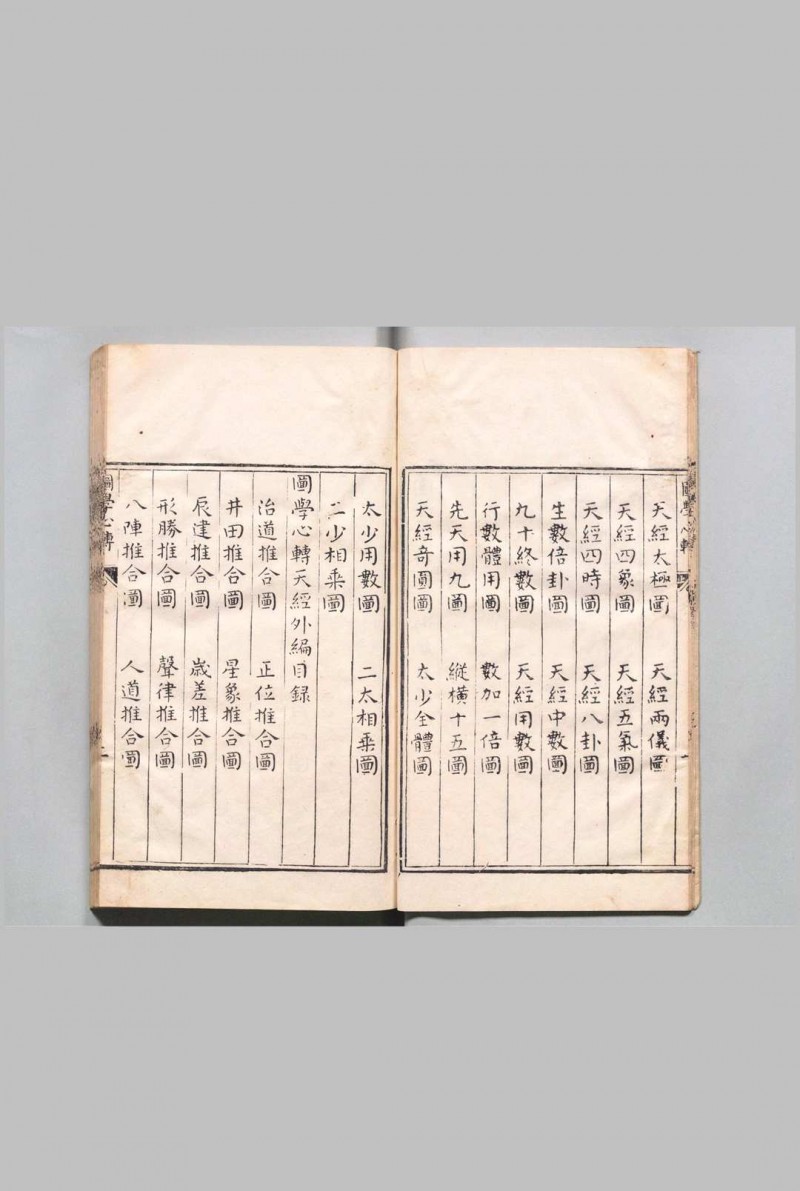 天經太極圖　天經兩儀圖
天經四象圖　天經五氣圖
天經四時圖　天經八卦圖
生數倍卦圖　天經中數圖
九十終數圖　天經用數圖
行數體用圖　數加一倍圖
先天用九圖　縱橫十五圖
天經奇圖圖　太少全體圖
太少用數圖　二太相乗圖
二少相乗圖
圖學心轉天經外編目録
治道推合圖　正位推合圖
井田推合圖　星象推合圖
辰建推合圖　歳差推合圖
形勝推合圖　聲律推合圖
八陣推合圖　人道推合圖
圖學心轉